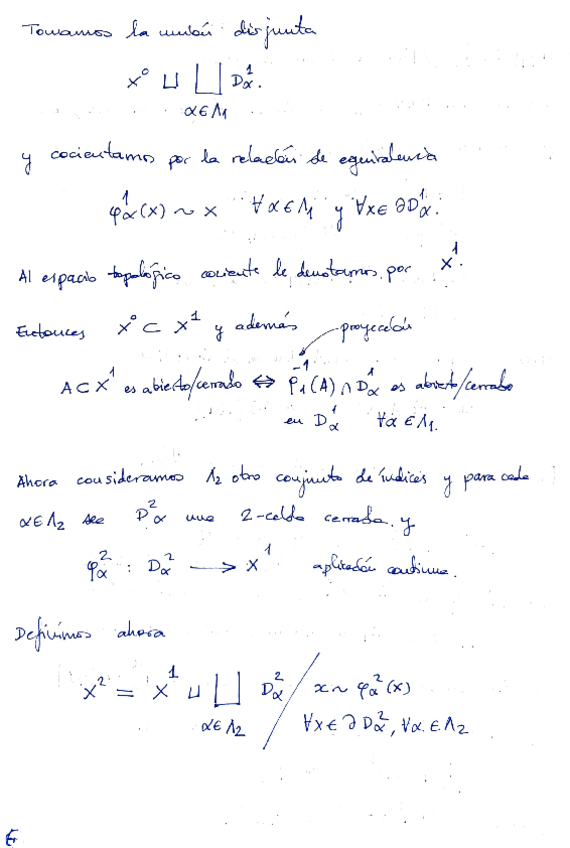 Tomamos la unión disjunta
X⁰ ⊔ ⨆ D¹_α.
α∈Λ₁
y cocientamos por la relación de equivalencia
φ¹_α(x) ~ x ∀α∈Λ₁ y ∀x∈ ∂D¹_α.
Al espacio topológico cociente le denotamos por X¹.
Entonces X⁰ ⊂ X¹ y además proyección
A⊂X¹ es abierto/cerrado ⇔ p₁⁻¹(A) ∩ D¹_α es abierto/cerrado
en D¹_α ∀α∈Λ₁.
Ahora consideramos Λ₂ otro conjunto de índices y para cada
α∈Λ₂ sea D²_α una 2-celda cerrada y
φ²_α : D²_α ⟶ X¹ aplicación continua.
Definimos ahora
X² = X¹ ⊔ ⨆ D²_α / x ~ φ²_α(x)
α∈Λ₂ ∀x∈∂D²_α, ∀α∈Λ₂